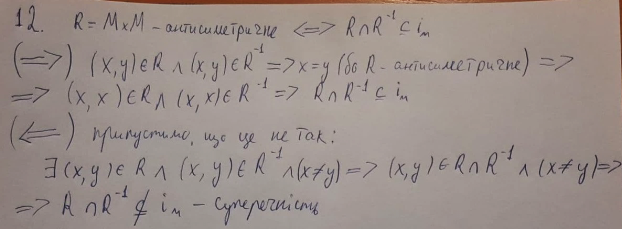 12. R = M×M – антисиметричне <=> R∩R⁻¹ ⊆ iₘ
(=>) (x,y)∈R ∧ (x,y)∈R⁻¹ => x=y (бо R - антисиметричне) =>
=> (x,x)∈R ∧ (x,x)∈R⁻¹ => R∩R⁻¹ ⊆ iₘ
(<=) припустимо, що це не так:
∃(x,y)∈R ∧ (x,y)∈R⁻¹ ∧ (x≠y) => (x,y)∈R∩R⁻¹ ∧ (x≠y) =>
=> R∩R⁻¹ ⊄ iₘ – суперечність